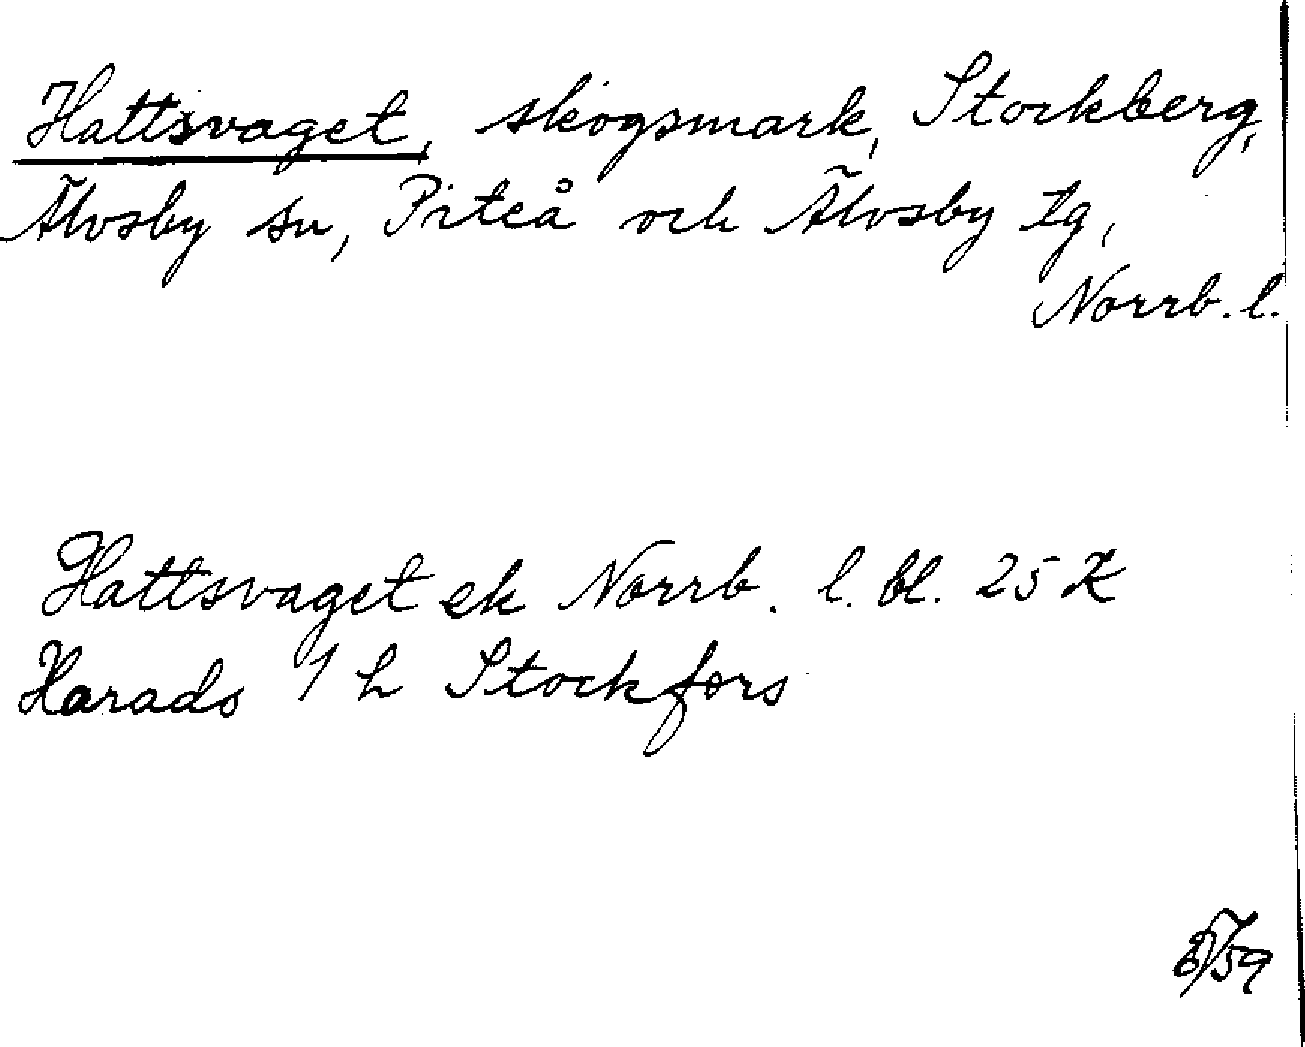 Hattsvaget, skogsmark, Stockberg,
Älvsby sn, Piteå och Älvsby tg,
Norrb. l.
Hattsvaget ek Norrb. l. bl. 25 K
Harads 1 h Stockfors